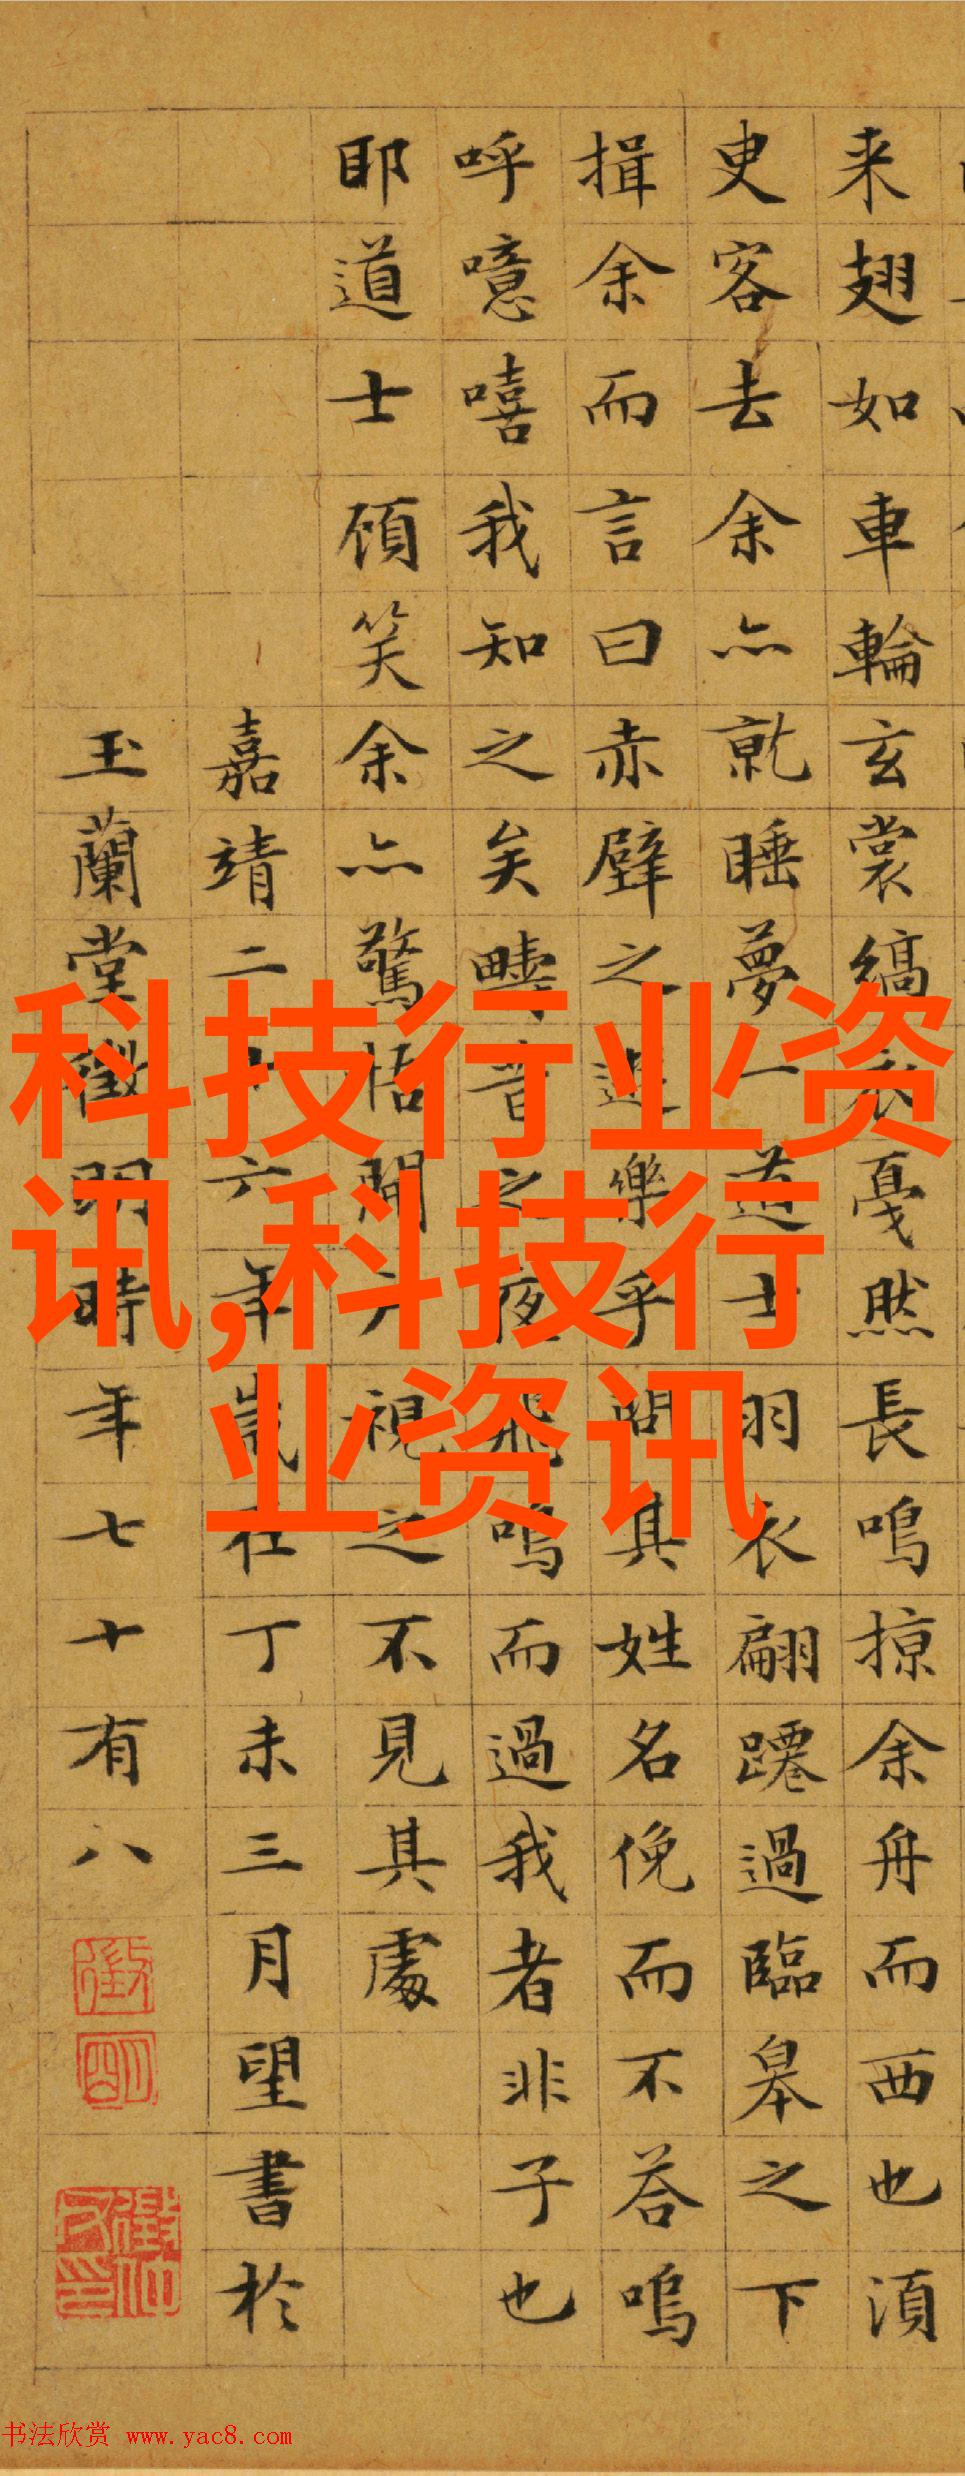 来翅如車輪玄裳縞衣戛然長鳴掠余舟而西也須
臾客去余亦就睡夢一道士羽衣翩躚過臨皋之下
揖余而言曰赤壁之遊樂乎問其姓名俛而不荅嗚
呼噫嘻我知之矣疇昔之夜飛鳴而過我者非子也
耶道士顧笑余亦驚悟開户視之不見其處
嘉靖二十六年歲在丁未三月望書於
玉蘭堂徵明時年七十有八
科技行业资
讯,科技行
业资讯
徵
明
书法欣赏 www.yac8.com